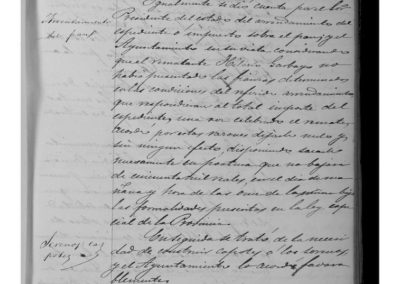 Igualmente se dió cuenta por el Sr
Presidente del estado del arrendamiento del
Arrendamiento
del
expediente o impuesto sobre el pan, y el
Ayuntamiento en su vista, considerando
que el rematante Garbayo no
había presentado las fianzas determinadas
en las condiciones del referido arrendamiento
que respondieran al total importe del
expediente una vez celebrado el remate
acordó por estas razones dejarle nulo y
sin ningun efecto, disponiendo sacarle
nuevamente en postura que no bajara
de cincuenta mil reales, en el día de ma
ñana y hora de las once de la misma bajo
las formalidades prescritas en la ley espe
cial de la Provincia.
Serenos ca
potes
En seguida se trató de la necesi
dad de construir capotes a los serenos,
y el Ayuntamiento lo acordó favora
blemente